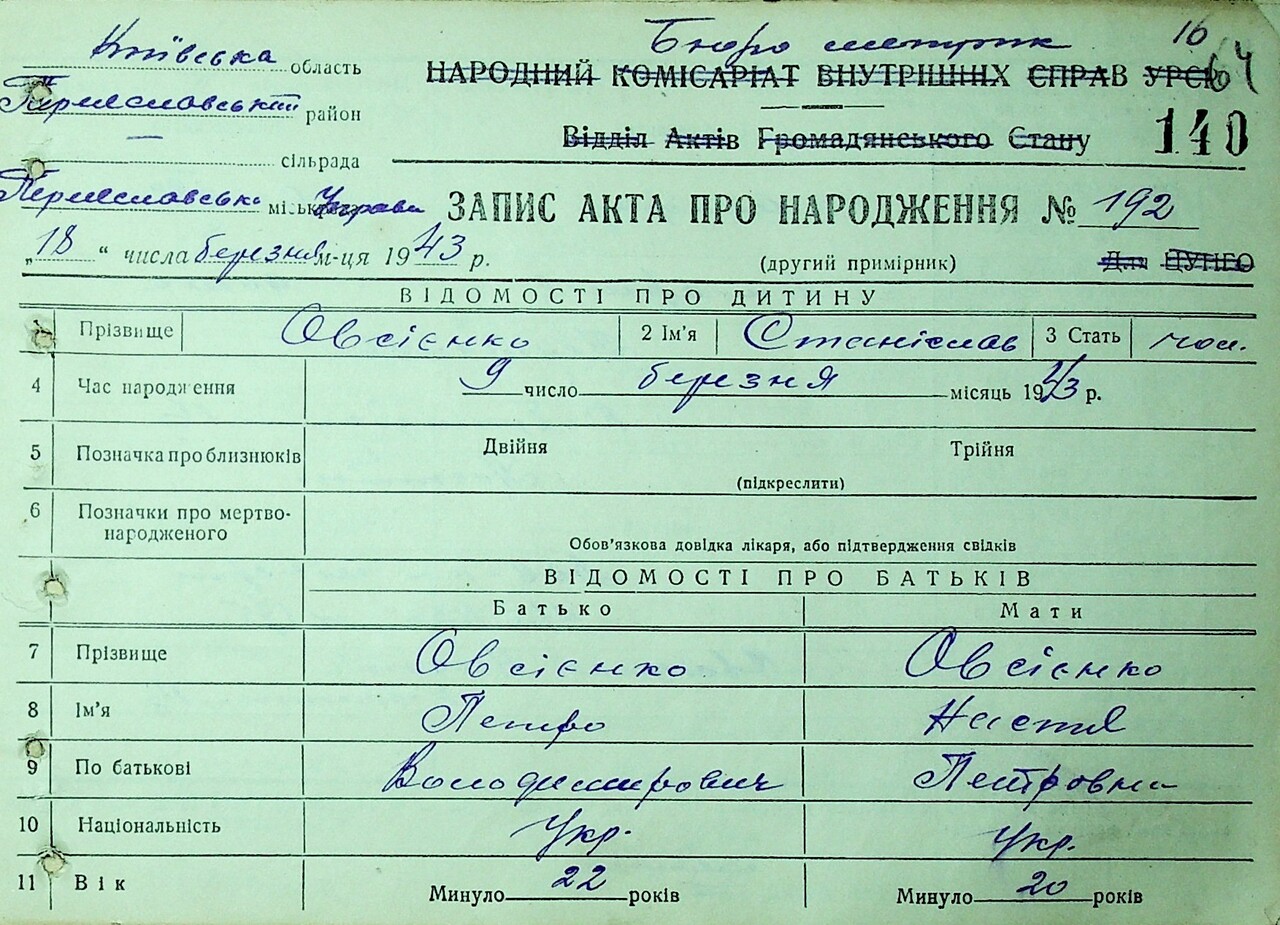 Київська область
Бюро метрик
16
64
НАРОДНИЙ КОМІСАРІАТ ВНУТРІШНІХ СПРАВ УРСР
Переяславський район
Відділ Актів Громадянського Стану
140
— сільрада
Переяславська міськ Управа
ЗАПИС АКТА ПРО НАРОДЖЕННЯ № 192
„18“ числа березня м-ця 1943 р.
(другий примірник)
Для ЦУНГО
ВІДОМОСТІ ПРО ДИТИНУ
Прізвище Овсієнко 2 Ім'я Станіслав 3 Стать чол.
4 Час народження 9 число березня місяць 1943 р.
5 Позначка про близнюків Двійня Трійня
(підкреслити)
6 Позначки про мертво-
народженого
Обов'язкова довідка лікаря, або підтвердження свідків
ВІДОМОСТІ ПРО БАТЬКІВ
Батько Мати
7 Прізвище Овсієнко Овсієнко
8 Ім'я Петро Настя
9 По батькові Володимирович Петровна
10 Національність Укр. Укр.
11 Вік Минуло 22 років Минуло 20 років